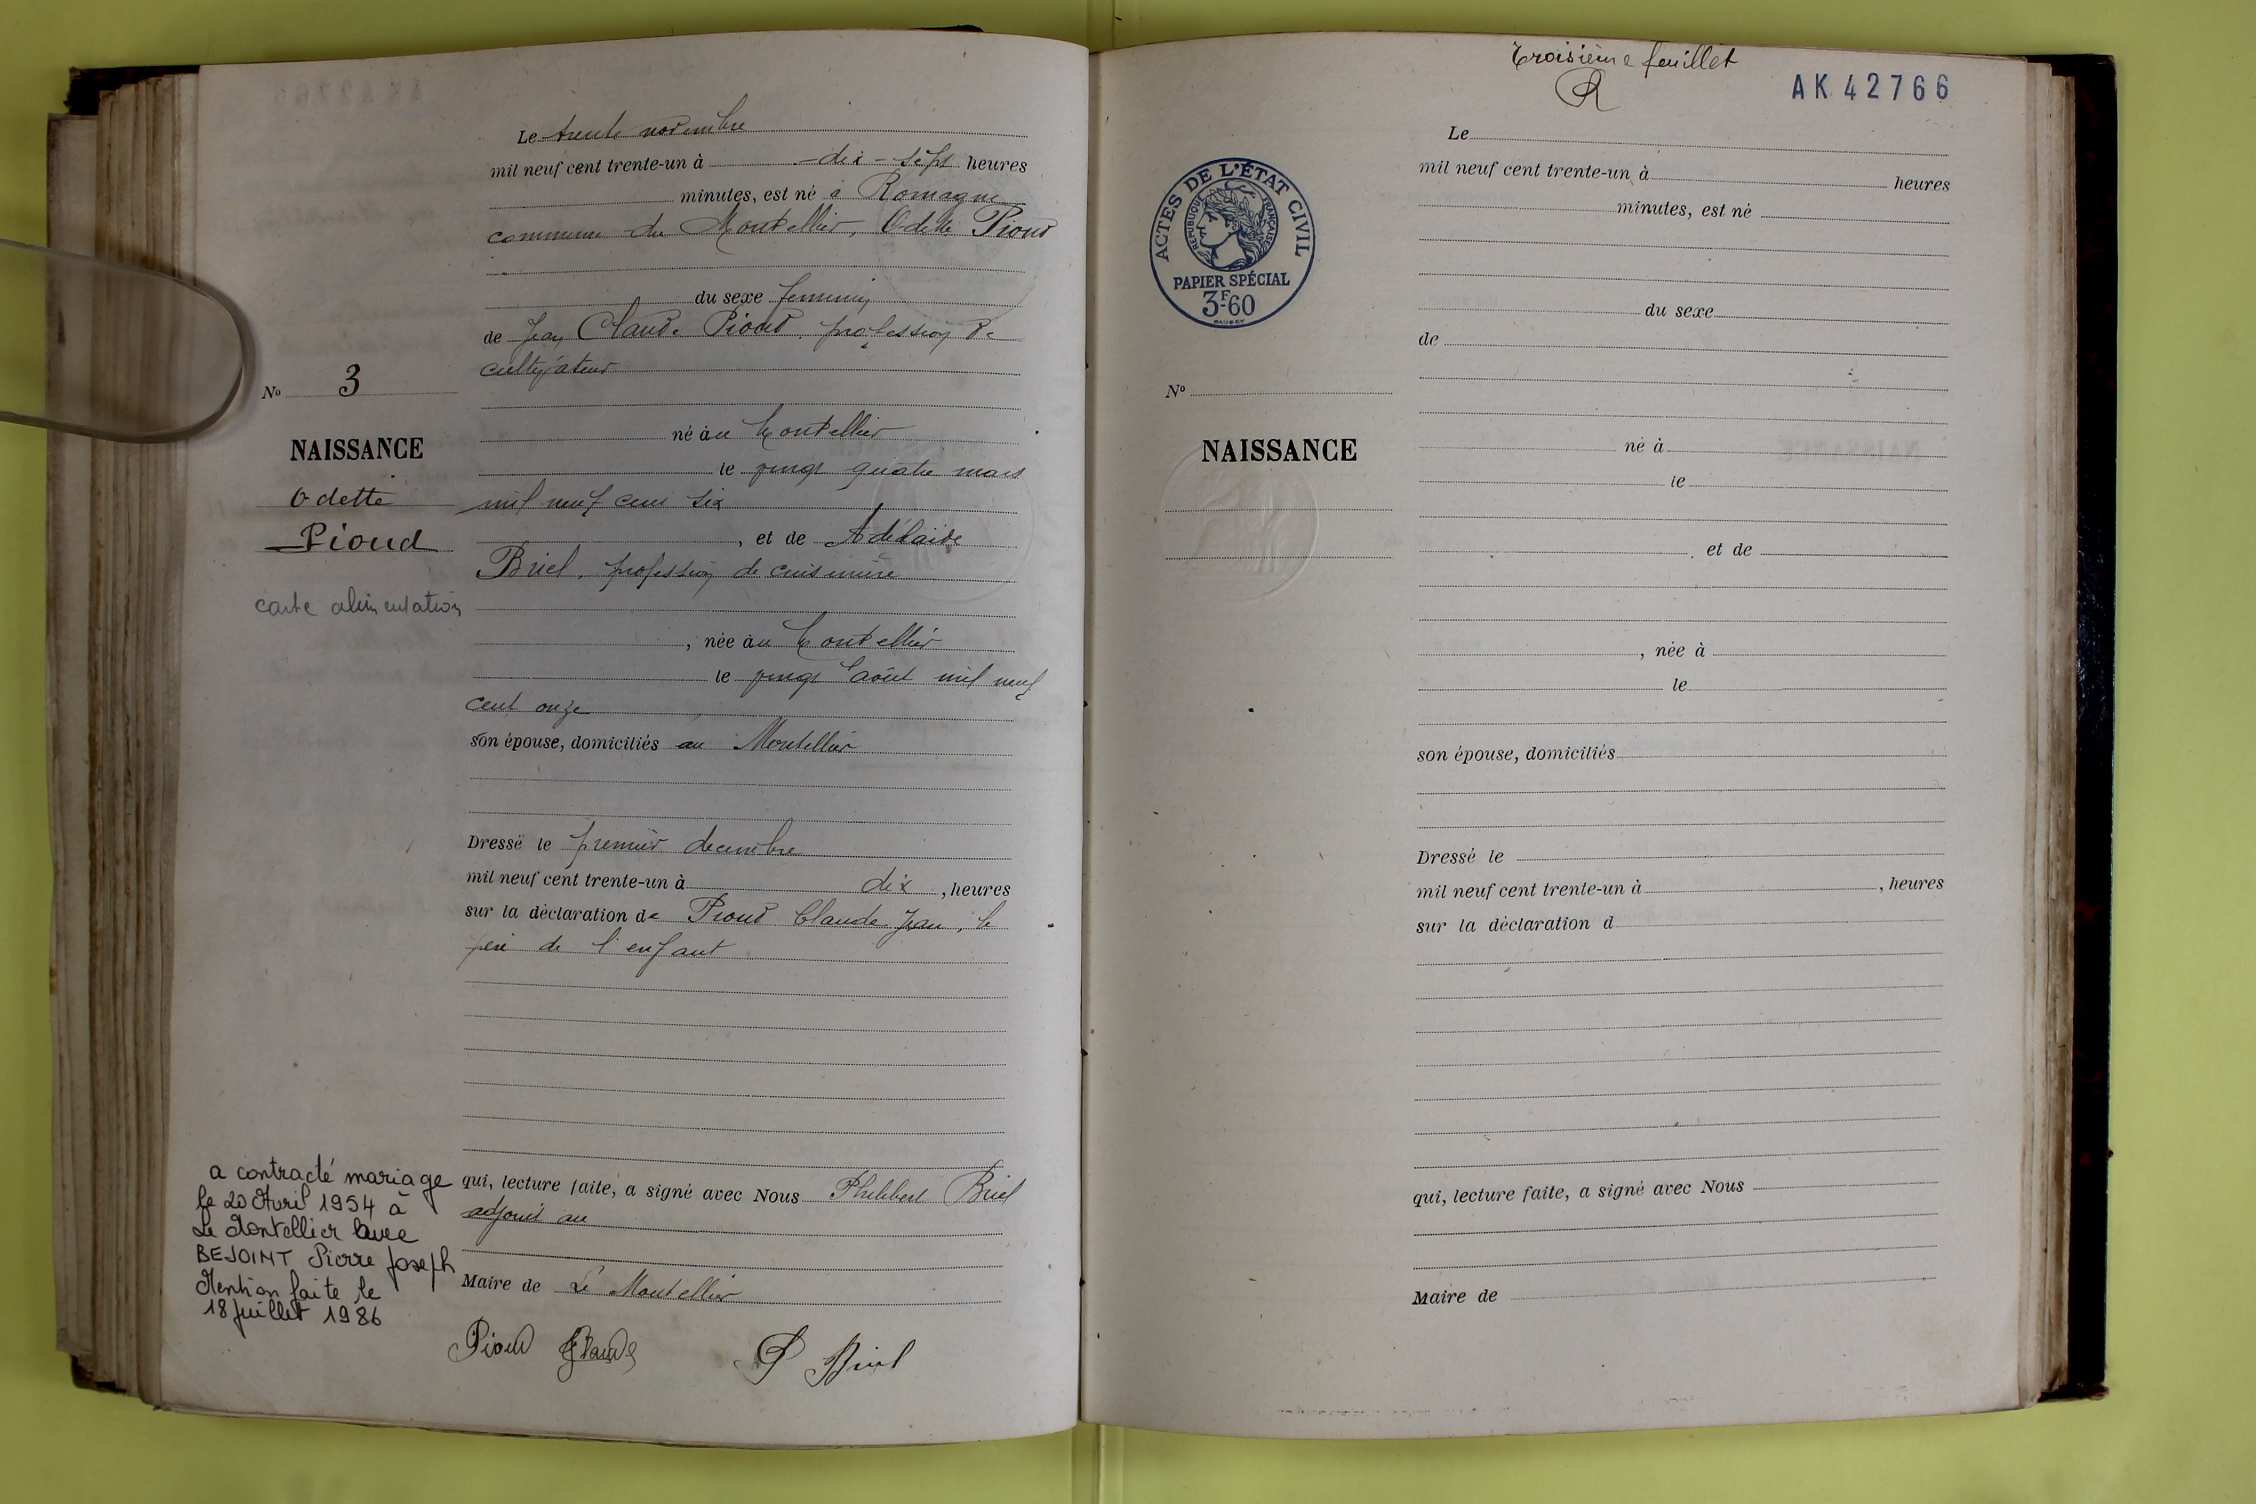 Le trente novembre
mil neuf cent trente-un à - dix - sept heures
minutes, est né à Romagne
commune du Montellier, Odette Pioud
du sexe feminin
de Jean Claude Pioud, profession de
cultivateur
né au Montellier
le vingt quatre mars
mil neuf cent six
, et de Adélaïde
Briel, profession de cuisinière
, née au Montellier
le vingt août mil neuf
cent onze
son épouse, domiciliés au Montellier
Dressé le premier decembre
mil neuf cent trente-un à dix , heures
sur la déclaration de Pioud Claude Jean, le
père de l'enfant
qui, lecture faite, a signé avec Nous Philibert Briel
adjoint au
Maire de Le Montellier
Pioud Claude
P Briel
No 3
NAISSANCE
Odette
Pioud
carte alimentation
a contracté mariage
le 20 Avril 1954 à
Le Montellier avec
BEJOINT Pierre Joseph
Mention faite le
18 juillet 1986
Troisième feuillet
AK 42766
ACTES DE L'ÉTAT CIVIL
RÉPUBLIQUE FRANÇAISE
PAPIER SPÉCIAL
3F-60
Le
mil neuf cent trente-un à heures
minutes, est né
du sexe
de
No
NAISSANCE
né à
le
, et de
, née à
le
son épouse, domiciliés
Dressé le
mil neuf cent trente-un à , heures
sur la déclaration d
qui, lecture faite, a signé avec Nous
Maire de